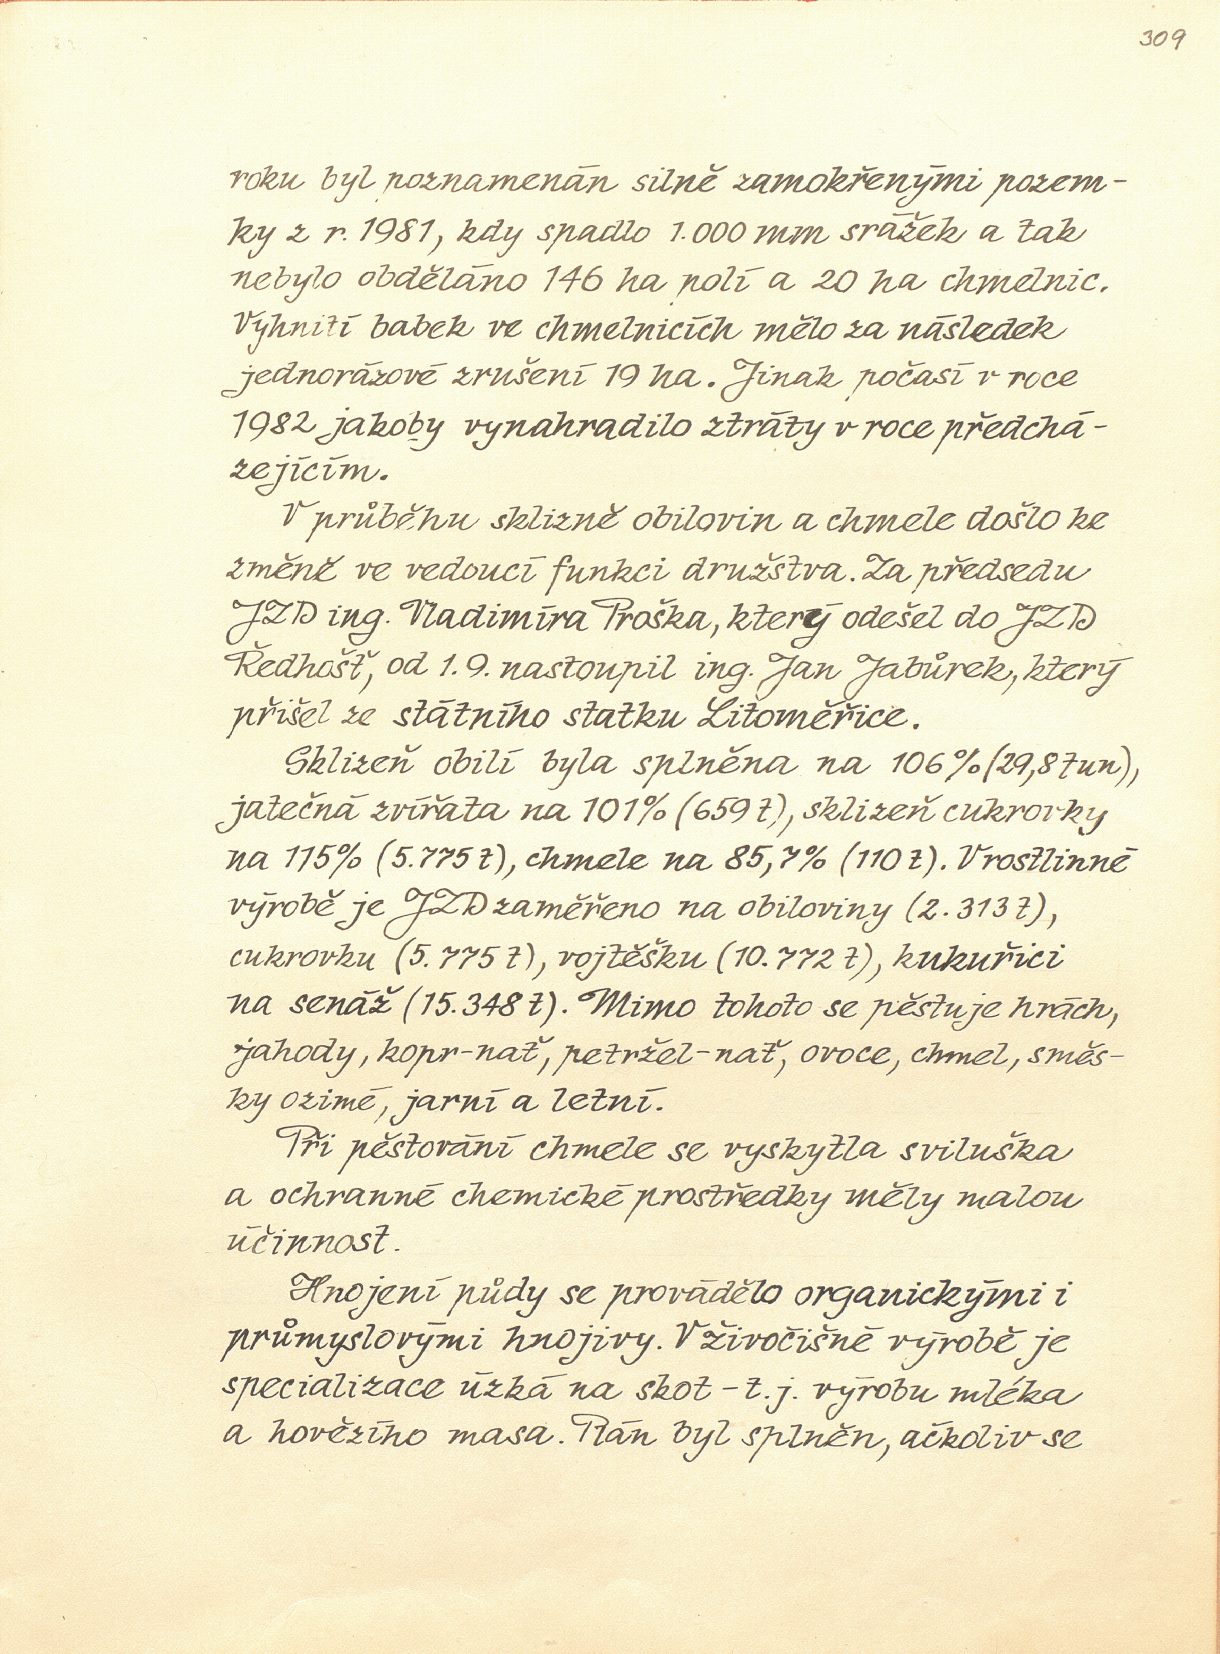 309
roku byl poznamenán silně zamokřenými pozem-
ky z r. 1981, kdy spadlo 1.000 mm srážek a tak
nebylo obděláno 146 ha polí a 20 ha chmelnic.
Vyhnití babek ve chmelnicích mělo za následek
jednorázové zrušení 19 ha. Jinak počasí v roce
1982 jakoby vynahradilo ztráty v roce předchá-
zejícím.
V průběhu sklizně obilovin a chmele došlo ke
změně ve vedoucí funkci družstva. Za předsedu
JZD ing. Vladimíra Proška, který odešel do JZD
Ředhošť, od 1.9. nastoupil ing. Jan Jabůrek, který
přišel ze státního statku Litoměřice.
Sklizeň obilí byla splněna na 106% (29,8 tun),
jatečná zvířata na 101% (659 t), sklizeň cukrovky
na 115% (5.775 t), chmele na 85,7% (110 t). V rostlinné
výrobě je JZD zaměřeno na obiloviny (2.313 t),
cukrovku (5.775 t), vojtěšku (10.772 t), kukuřici
na senáž (15.348 t). Mimo tohoto se pěstuje hrách,
jahody, kopr-nať, petržel-nať, ovoce, chmel, směs-
ky ozimé, jarní a letní.
Při pěstování chmele se vyskytla sviluška
a ochranné chemické prostředky měly malou
účinnost.
Hnojení půdy se provádělo organickými i
průmyslovými hnojivy. V živočišné výrobě je
specializace úzká na skot - t.j. výrobu mléka
a hovězího masa. Plán byl splněn, ačkoliv se